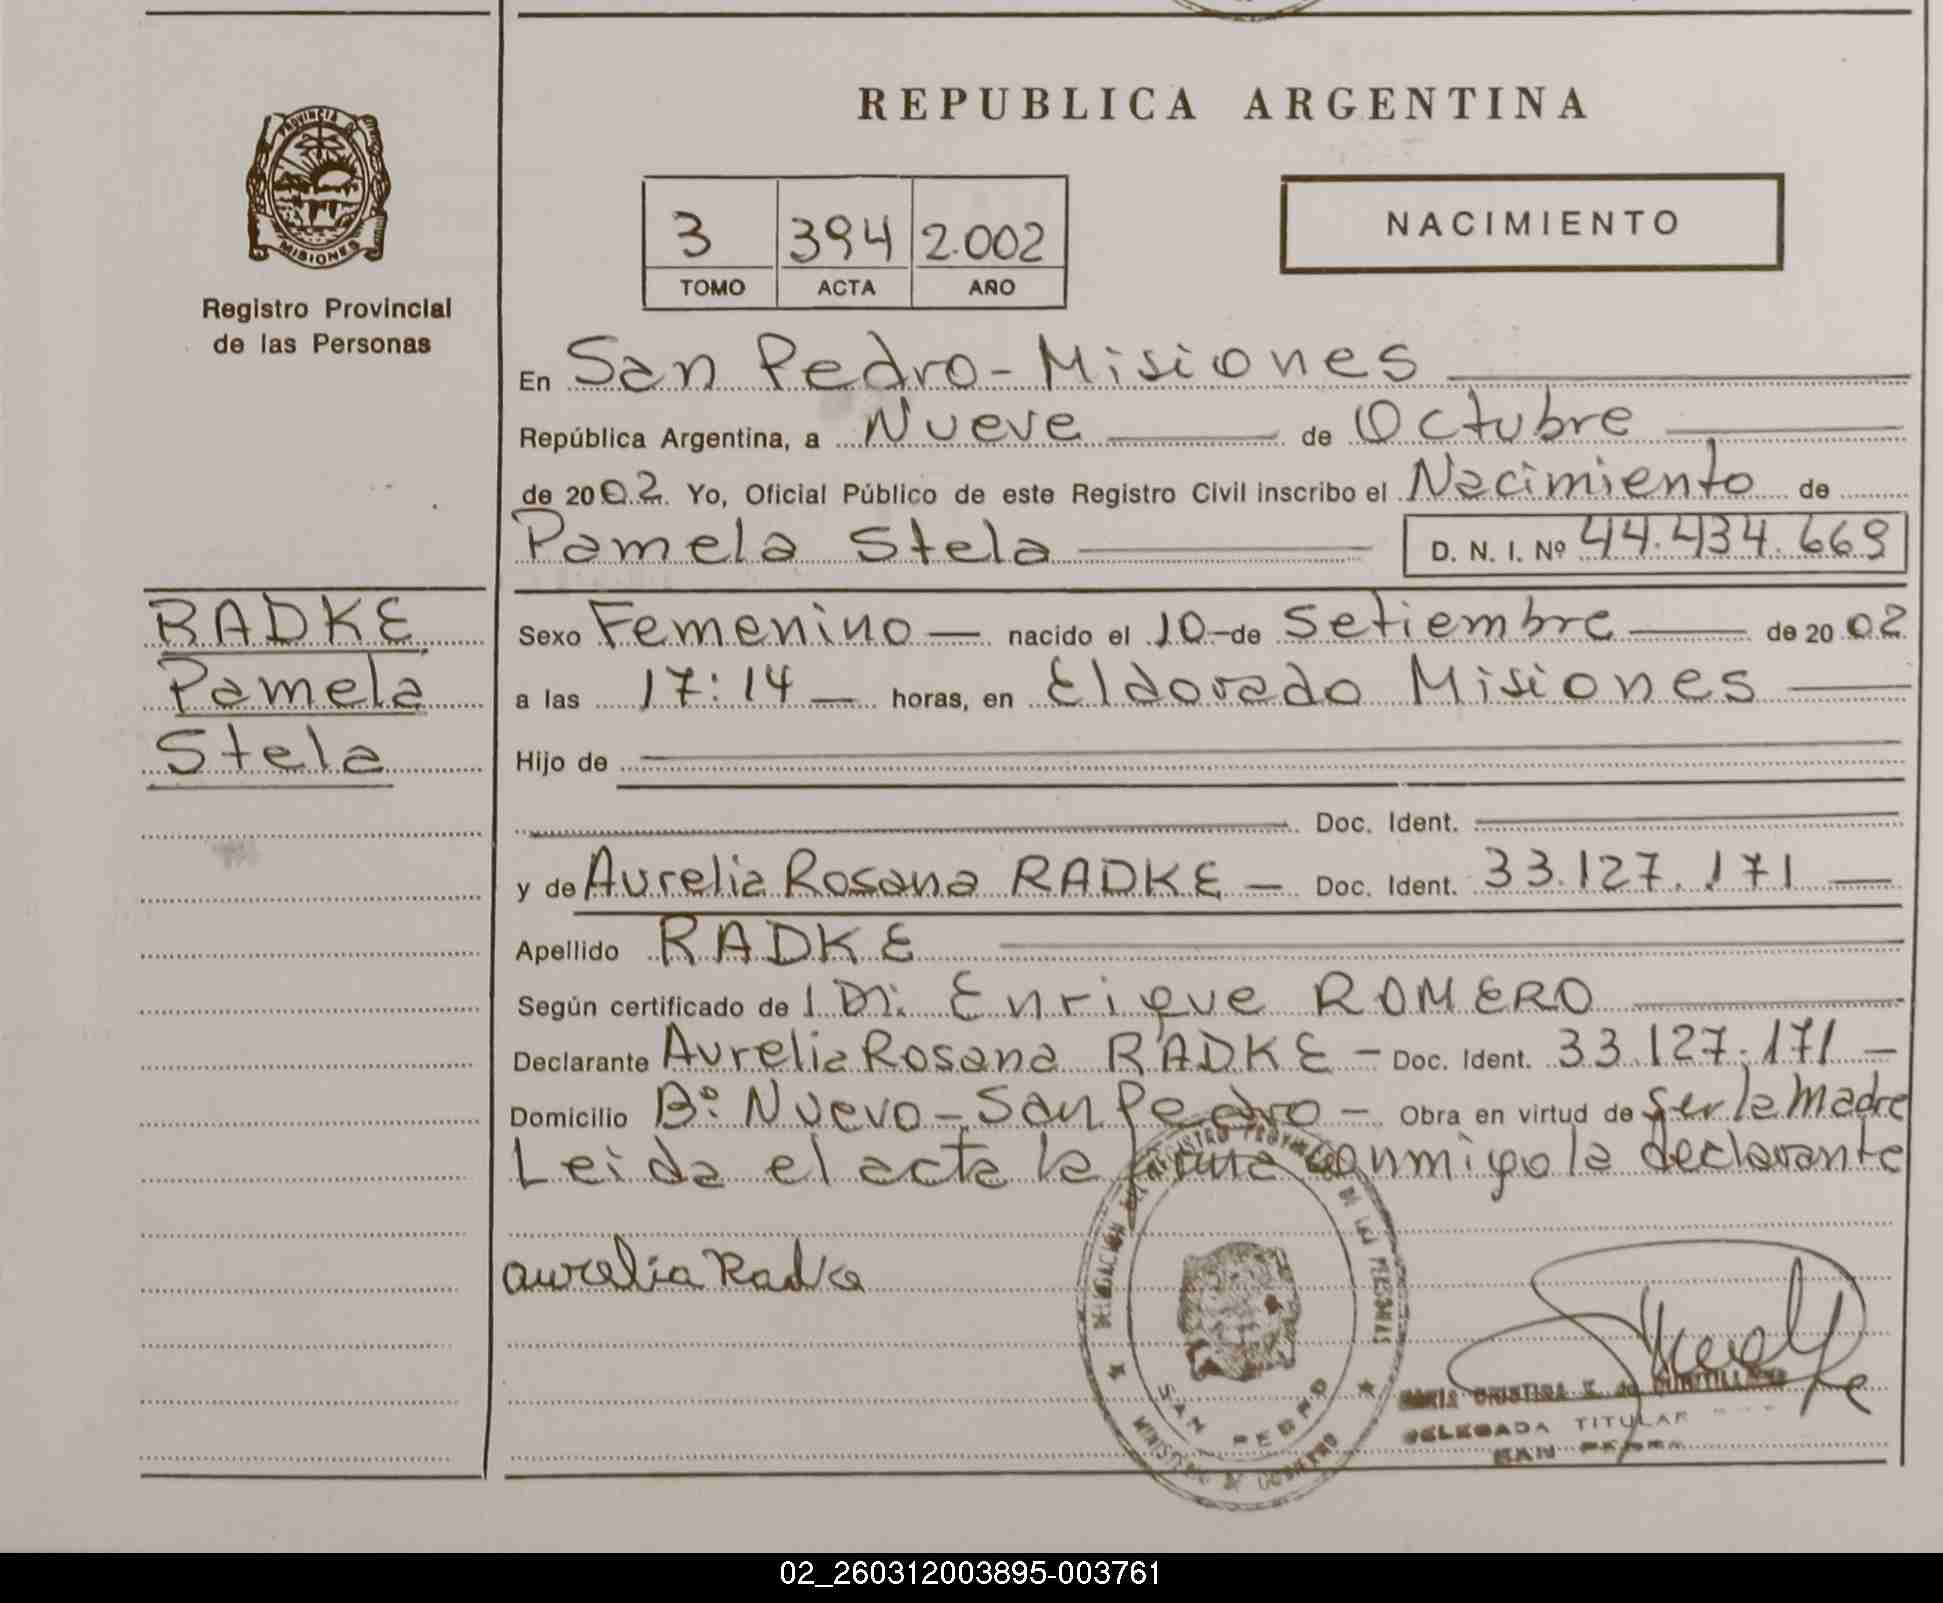 REPUBLICA ARGENTINA
PROVINCIA DE
MISIONES
Registro Provincial
de las Personas
3 394 2.002
TOMO ACTA AÑO
NACIMIENTO
En San Pedro - Misiones
República Argentina, a Nueve de Octubre
de 20 02. Yo, Oficial Público de este Registro Civil inscribo el Nacimiento de
Pamela Stela D. N. I. Nº 44.434.669
RADKE
Pamela
Stela
Sexo Femenino — nacido el 10 - de Setiembre — de 20 02
a las 17:14 — horas, en Eldorado Misiones
Hijo de
Doc. Ident.
y de Aurelia Rosana RADKE — Doc. Ident. 33.127.171 —
Apellido RADKE
Según certificado de Enrique ROMERO
Declarante Aurelia Rosana RADKE - Doc. Ident. 33.127.171 —
Domicilio Bº Nuevo - San Pedro - Obra en virtud de ser la Madre
Leida el acta la firma conmigo la declarante
aurelia Radke
DELEGACION DEL REGISTRO PROVINCIAL DE LAS PERSONAS
SAN PEDRO
MINISTERIO DE GOBIERNO
MARIA CRISTINA
DELEGADA TITULAR
SAN PEDRO
02_260312003895-003761